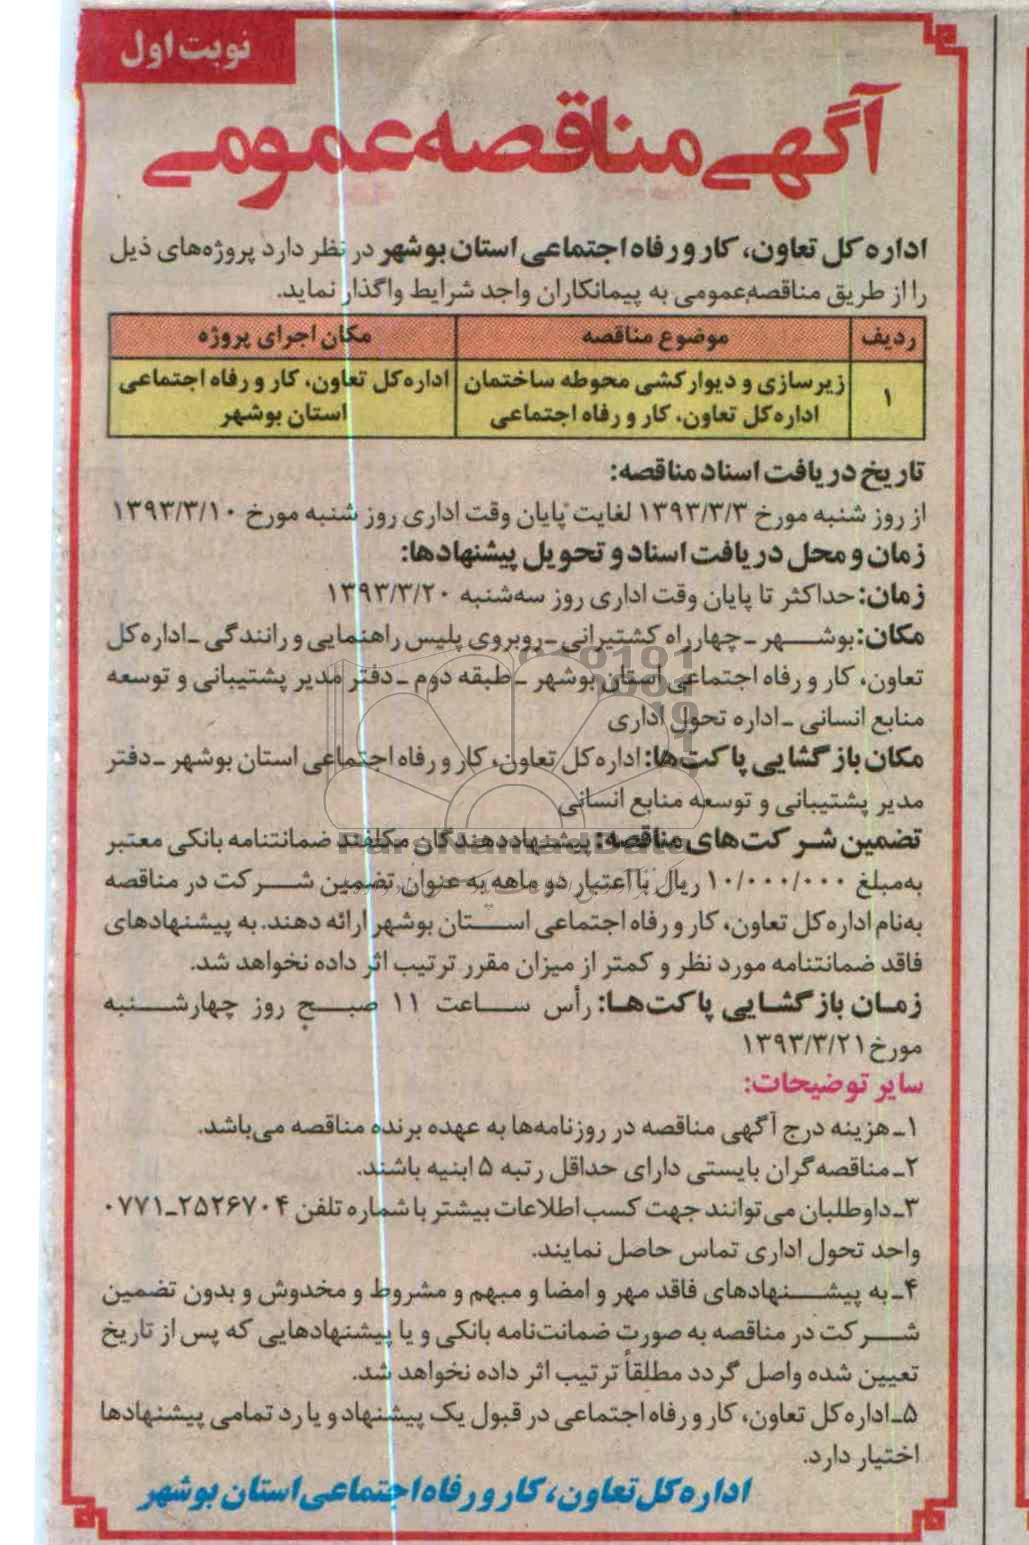 نوبت اول
آگهی مناقصه عمومی
اداره کل تعاون، کار و رفاه اجتماعی استان بوشهر در نظر دارد پروژه‌های ذیل
را از طریق مناقصه‌عمومی به پیمانکاران واجد شرایط واگذار نماید.
ردیف موضوع مناقصه مکان اجرای پروژه
۱ زیرسازی و دیوارکشی محوطه ساختمان اداره‌کل تعاون، کار و رفاه اجتماعی
اداره‌کل تعاون، کار و رفاه اجتماعی استان بوشهر
تاریخ دریافت اسناد مناقصه:
از روز شنبه مورخ ۱۳۹۳/۳/۳ لغایت پایان وقت اداری روز شنبه مورخ ۱۳۹۳/۳/۱۰
زمان و محل دریافت اسناد و تحویل پیشنهادها:
زمان: حداکثر تا پایان وقت اداری روز سه‌شنبه ۱۳۹۳/۳/۲۰
مکان: بوشهر ـ چهارراه کشتیرانی ـ روبروی پلیس راهنمایی و رانندگی ـ اداره‌کل
تعاون، کار و رفاه اجتماعی استان بوشهر ـ طبقه دوم ـ دفتر مدیر پشتیبانی و توسعه
منابع انسانی ـ اداره تحول اداری
مکان بازگشایی پاکت‌ها: اداره‌کل تعاون، کار و رفاه اجتماعی استان بوشهر ـ دفتر
مدیر پشتیبانی و توسعه منابع انسانی
تضمین شرکت‌های مناقصه: پیشنهاددهندگان مکلفند ضمانتنامه بانکی معتبر
به‌مبلغ ۱۰/۰۰۰/۰۰۰ ریال با اعتبار دو ماهه به عنوان تضمین شرکت در مناقصه
به‌نام اداره‌کل تعاون، کار و رفاه اجتماعی استان بوشهر ارائه دهند. به پیشنهادهای
فاقد ضمانتنامه مورد نظر و کمتر از میزان مقرر ترتیب اثر داده نخواهد شد.
زمان بازگشایی پاکت‌ها: رأس ساعت ۱۱ صبح روز چهارشنبه
مورخ ۱۳۹۳/۳/۲۱
سایر توضیحات:
۱ـ هزینه درج آگهی مناقصه در روزنامه‌ها به عهده برنده مناقصه می‌باشد.
۲ـ مناقصه‌گران بایستی دارای حداقل رتبه ۵ ابنیه باشند.
۳ـ داوطلبان می‌توانند جهت کسب اطلاعات بیشتر با شماره تلفن ۲۵۲۶۷۰۴ـ۰۷۷۱
واحد تحول اداری تماس حاصل نمایند.
۴ـ به پیشنهادهای فاقد مهر و امضا و مبهم و مشروط و مخدوش و بدون تضمین
شرکت در مناقصه به صورت ضمانت‌نامه بانکی و یا پیشنهادهایی که پس از تاریخ
تعیین شده واصل گردد مطلقاً ترتیب اثر داده نخواهد شد.
۵ـ اداره‌کل تعاون، کار و رفاه اجتماعی در قبول یک پیشنهاد و یا رد تمامی پیشنهادها
اختیار دارد.
اداره کل تعاون، کار و رفاه اجتماعی استان بوشهر